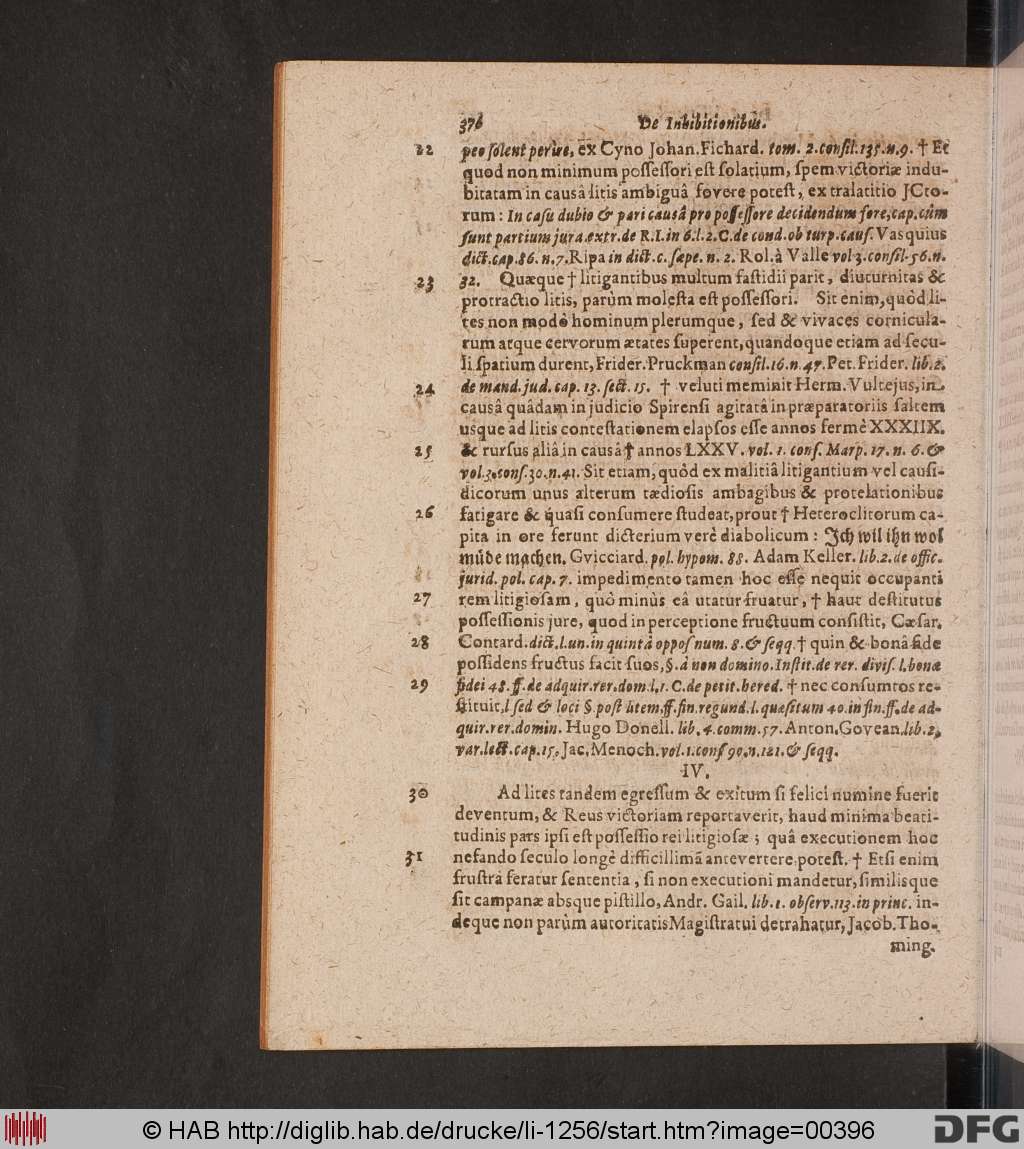 376 De Inhibitionibus.
22 peo solent perire, ex Cyno Johan. Fichard. tom. 2. consil. 135. n. 9. † Et
quod non minimum possessori est solatium, spem victoriæ indu-
bitatam in causâ litis ambiguâ fovere potest, ex tralatitio JCto-
rum: In casu dubio & pari causâ pro possessore decidendum fore, cap. cùm
sunt partium jura. extr. de R. I. in 6. l. 2. C. de cond. ob turp. caus. Vasquius
dict. cap. 86. n. 7. Ripa in dict. c. sæpe. n. 2. Rol. à Valle vol 3. consil. 56. n.
23 32. Quæque † litigantibus multum fastidii parit, diuturnitas &
protractio litis, parùm molesta est possessori. Sit enim, quòd li-
tes non modò hominum plerumque, sed & vivaces cornicula-
rum atque cervorum ætates superent, quandoque etiam ad secu-
li spatium durent, Frider. Pruckman consil. 16. n. 47. Pet. Frider. lib. 2.
24 de mand. jud. cap. 13. sect. 15. † veluti meminit Herm. Vultejus, in
causâ quâdam in judicio Spirensi agitatâ in præparatoriis saltem
usque ad litis contestationem elapsos esse annos fermè XXXIIX.
25 & rursus aliâ in causâ † annos LXXV. vol. 1. cons. Marp. 17. n. 6. &
vol. 3. cons. 30. n. 41. Sit etiam, quòd ex malitiâ litigantium vel causi-
dicorum unus alterum tædiosis ambagibus & protelationibus
26 fatigare & quasi consumere studeat, prout † Heteroclitorum ca-
pita in ore ferunt dicterium verè diabolicum: Ich wil ihn wol
můde machen. Gvicciard. pol. hypom. 88. Adam Keller. lib. 2. de offic.
jurid. pol. cap. 7. impedimento tamen hoc esse nequit occupanti
27 rem litigiosam, quò minùs eâ utatur fruatur, † haut destitutus
possessionis jure, quod in perceptione fructuum consistit, Cæsar.
28 Contard. dict. l. un. in quintâ oppos num. 8. & seqq. † quin & bonâ fide
possidens fructus facit suos, §. à non domino. Instit. de rer. divis. l. bonæ
29 fidei 48. ff. de adquir. rer. dom. l. 1. C. de petit. hered. † nec consumtos re-
stituit, l sed & loci §. post litem, ff. fin. regund. l. quæsitum 40. in fin. ff. de ad-
quir. rer. domin. Hugo Donell. lib. 4. comm. 57. Anton. Govean. lib. 2.
var. lect. cap. 15. Jac. Menoch. vol. 1. cons 90. n. 121. & seqq.
IV.
30 Ad lites tandem egressum & exitum si felici numine fuerit
deventum, & Reus victoriam reportaverit, haud minima beati-
tudinis pars ipsi est possessio rei litigiosæ; quâ executionem hoc
31 nefando seculo longè difficillimã antevertere potest. † Etsi enim
frustrà feratur sententia, si non executioni mandetur, similisque
sit campanæ absque pistillo, Andr. Gail. lib. 1. observ. 113. in princ. in-
deque non parùm autoritatis Magistratui detrahatur, Jacob. Tho-
ming.
© HAB http://diglib.hab.de/drucke/li-1256/start.htm?image=00396
DFG